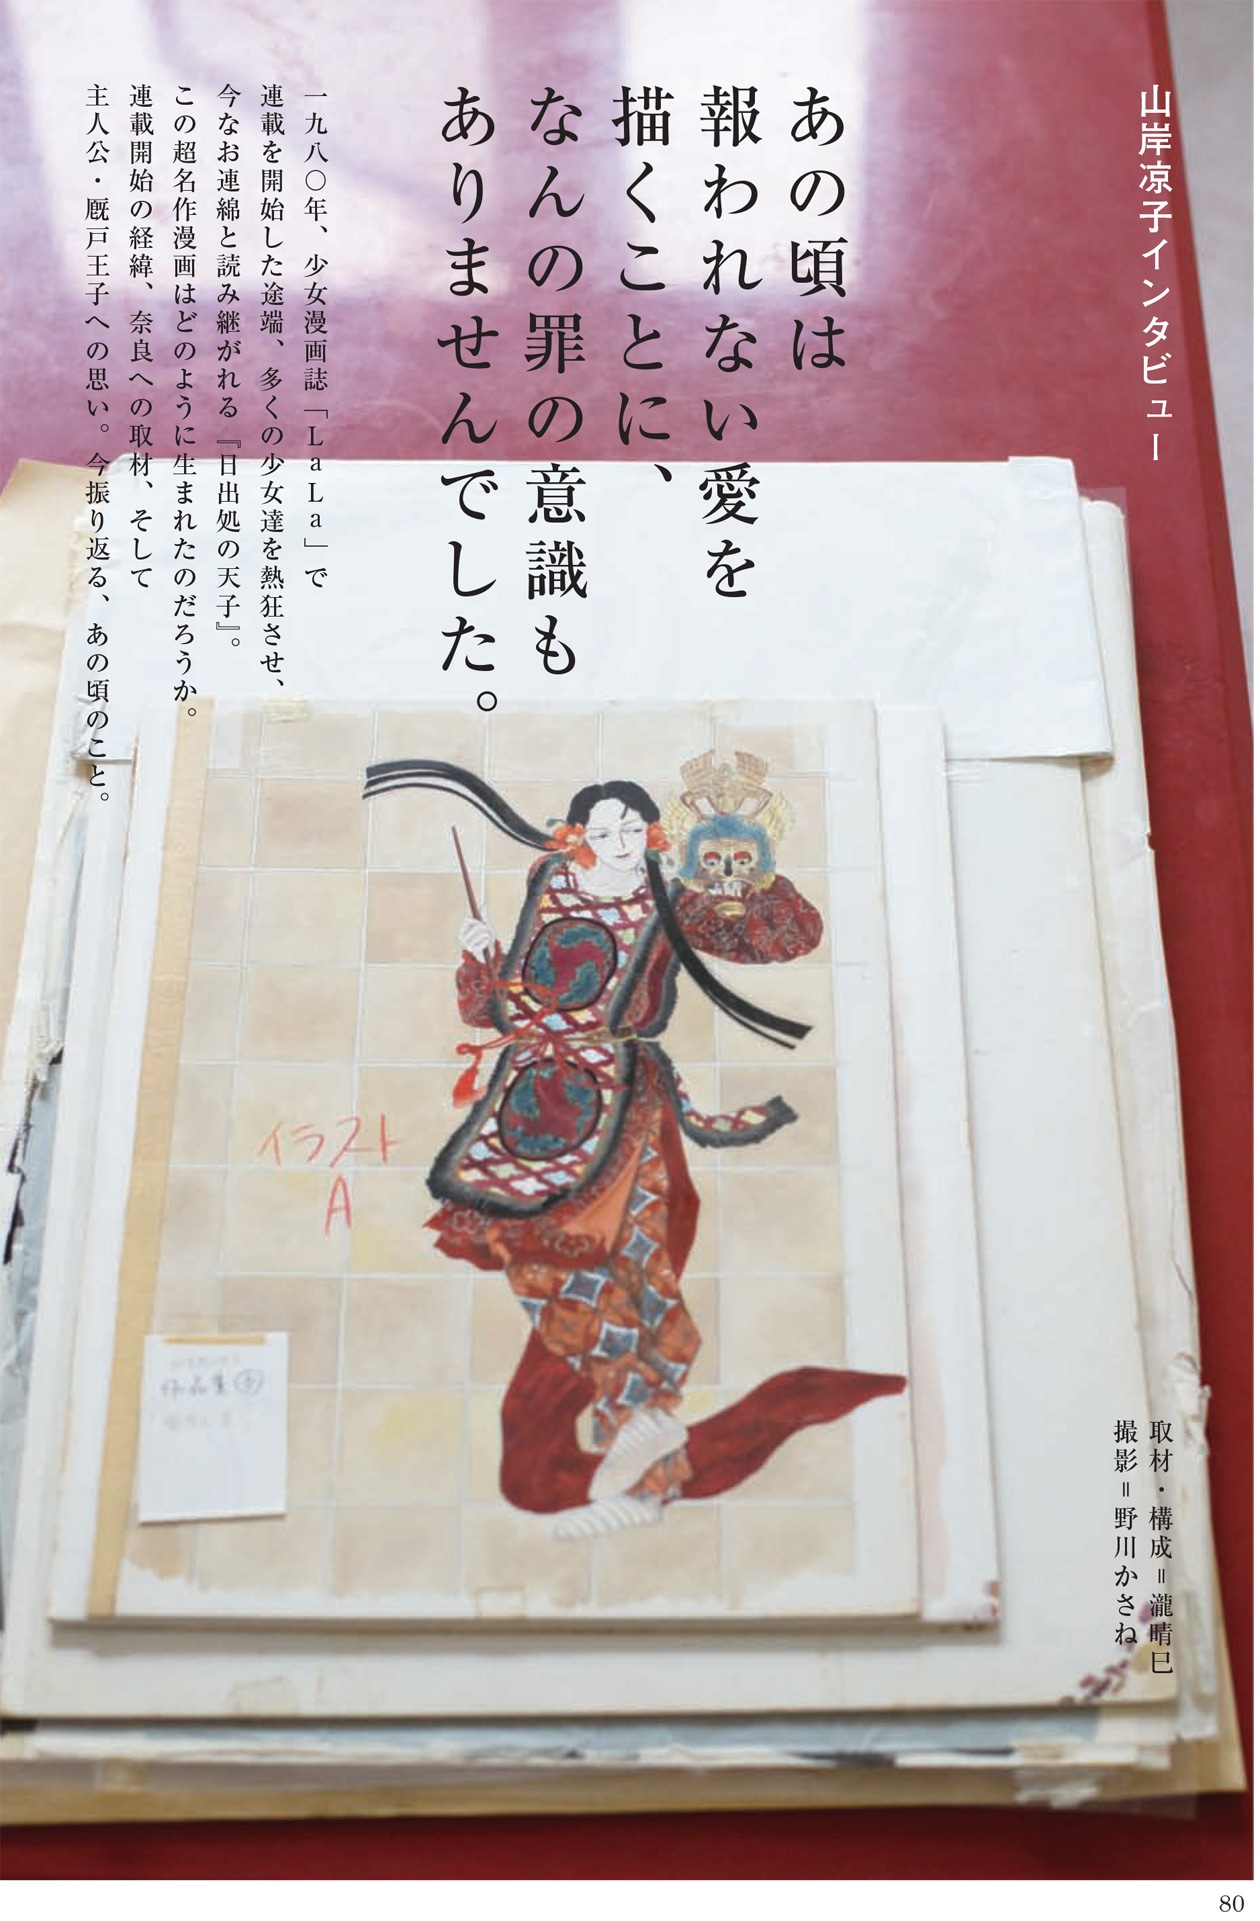 山岸凉子インタビュー
あの頃は
報われない愛を
描くことに、
なんの罪の意識も
ありませんでした。
一九八〇年、少女漫画誌「LaLa」で
連載を開始した途端、多くの少女達を熱狂させ、
今なお連綿と読み継がれる『日出処の天子』。
この超名作漫画はどのように生まれたのだろうか。
連載開始の経緯、奈良への取材、そして
主人公・厩戸王子への思い。今振り返る、あの頃のこと。
取材・構成＝瀧晴巳
撮影＝野川かさね
イラスト
A
作品集
80